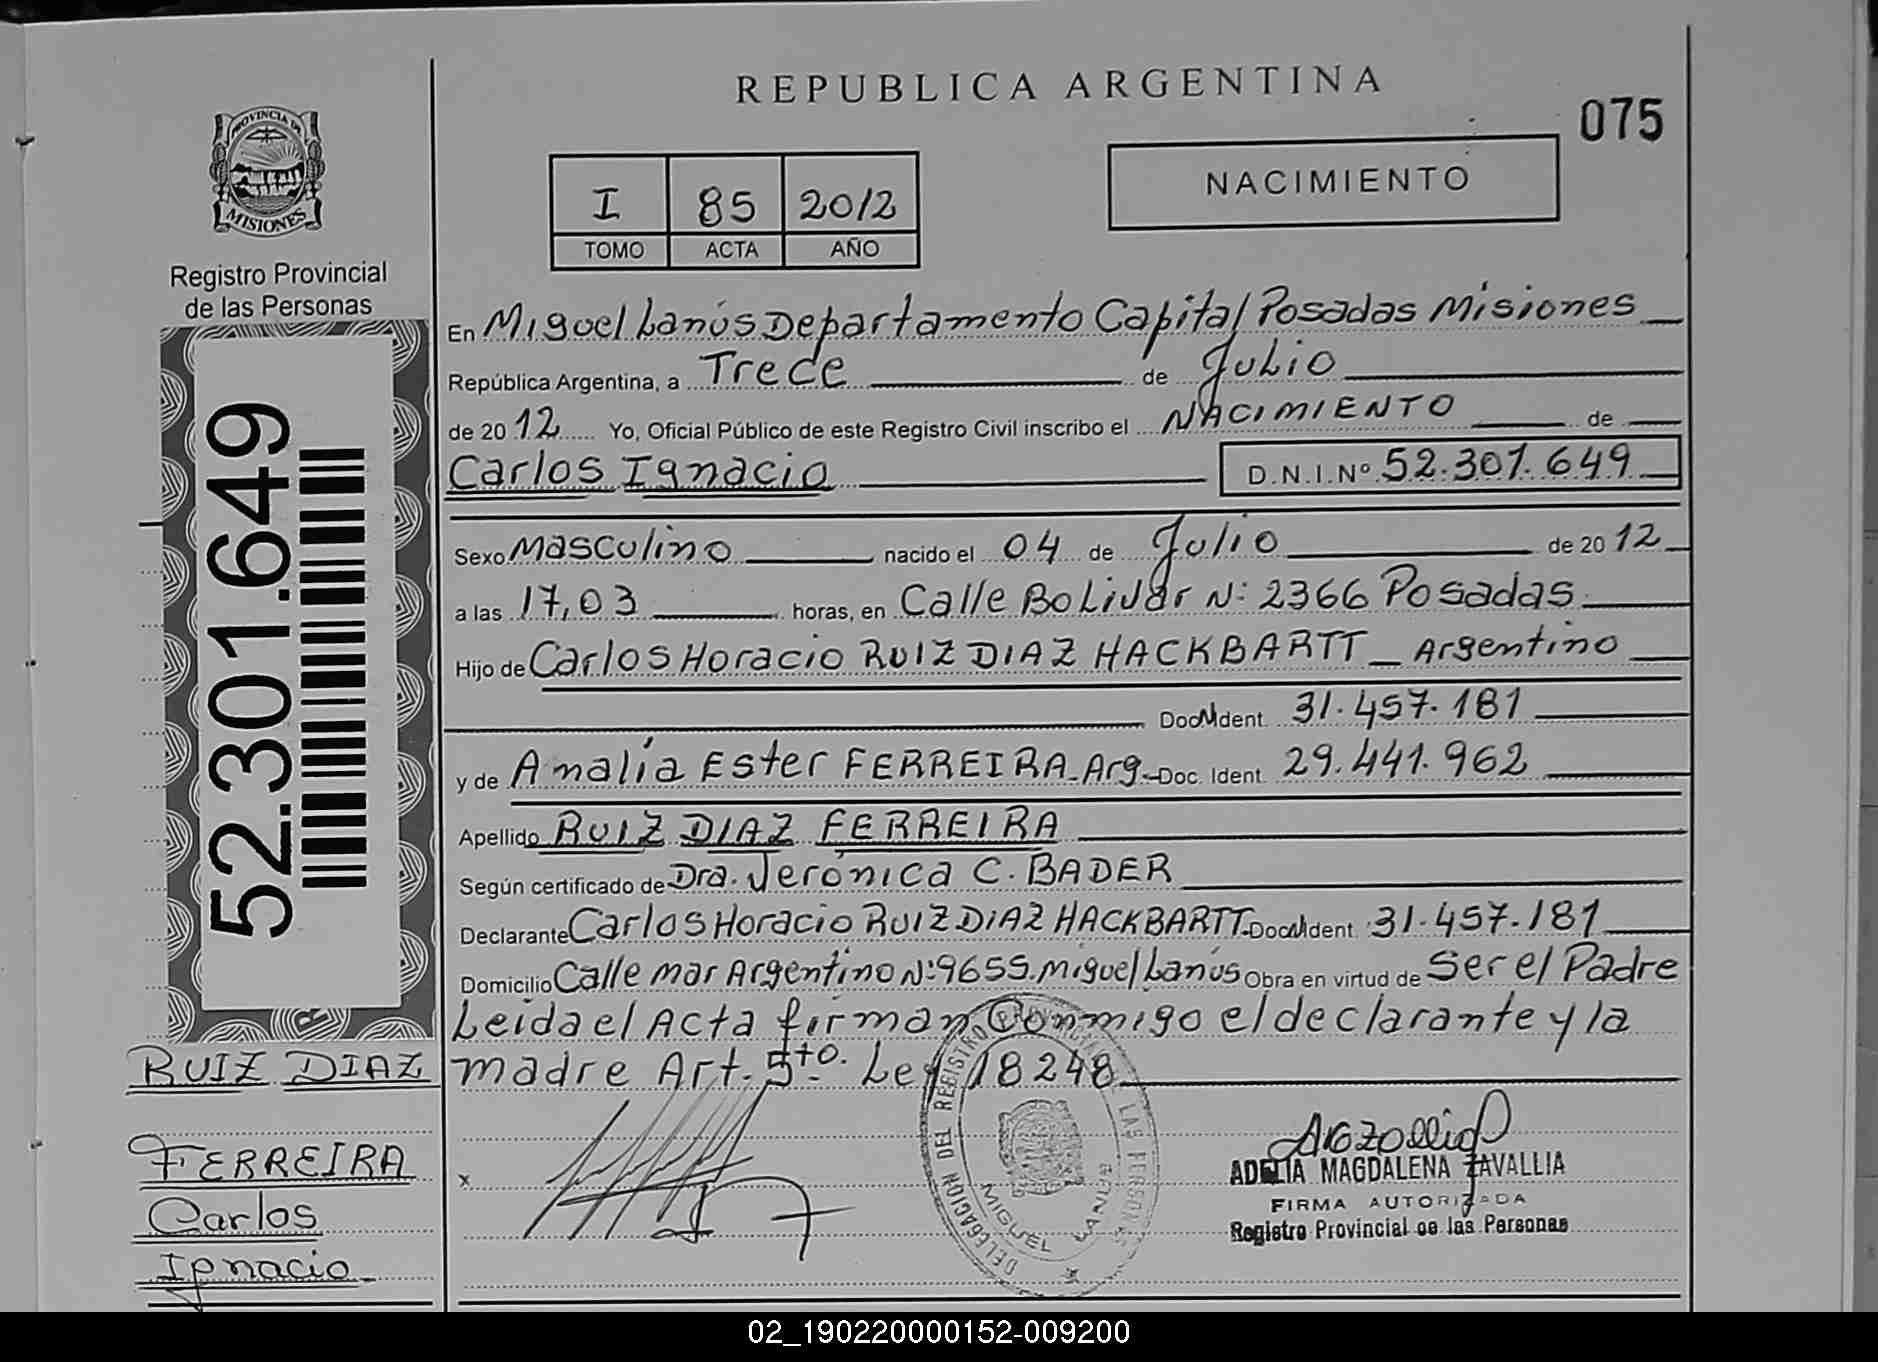 REPUBLICA ARGENTINA
075
PROVINCIA DE
MISIONES
Registro Provincial
de las Personas
52.301.649
I 85 2012
TOMO ACTA AÑO
NACIMIENTO
En Miguel Lanús Departamento Capital Posadas Misiones
República Argentina, a Trece de Julio
de 2012 Yo, Oficial Público de este Registro Civil inscribo el NACIMIENTO de
Carlos Ignacio D.N.I.Nº 52.301.649
Sexo Masculino nacido el 04 de Julio de 2012
a las 17,03 horas, en Calle Bolivar N: 2366 Posadas
Hijo de Carlos Horacio RUIZ DIAZ HACKBARTT _ Argentino
Doc. Ident. 31.457.181
y de Amalía Ester FERREIRA-Arg. Doc. Ident. 29.441.962
Apellido RUIZ DIAZ FERREIRA
Según certificado de Dra. Verónica C. BADER
Declarante Carlos Horacio RUIZ DIAZ HACKBARTT Doc. Ident. 31.457.181
Domicilio Calle mar Argentino N:9655.miguel Lanús Obra en virtud de Ser el Padre
Leida el Acta firman Conmigo el declarante y la
madre Art. 5to. Ley 18248
RUIZ DIAZ
FERREIRA
Carlos
Ignacio
x
DELEGACION DEL REGISTRO PROVINCIAL DE LAS PERSONAS
MIGUEL LANUS
ADELIA MAGDALENA ZAVALLIA
FIRMA AUTORIZADA
Registro Provincial de las Personas
02_190220000152-009200